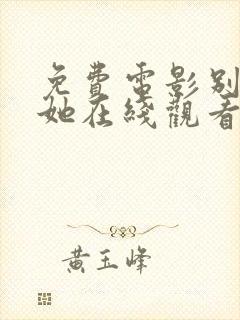 免費電影别
她在綫觀看
黄玉峰